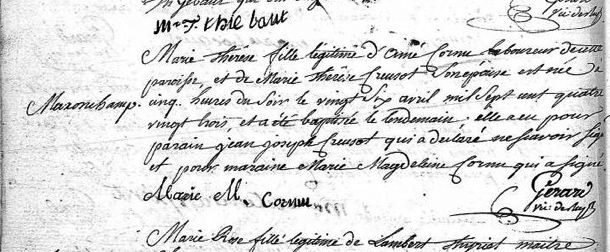 M. T. thiebaut
Gerard
vic: de
Marie thérèse fille légitime d'Aimé Cornu laboureur de cette
paroisse, et de Marie thérèse Creusot son épouse est née à
Maxonchamp. cinq heures du soir le vingt six avril mil sept cent quatre
vingt trois, et a été baptisée le lendemain: elle a eu pour
parain jean joseph Creusot qui a déclaré ne savoir sig
et pour maraine Marie Magdeleine Cornu qui a signé.
Marie M. Cornu
Gerard
vic: de
Marie Rose fille légitime de Lambert maitre